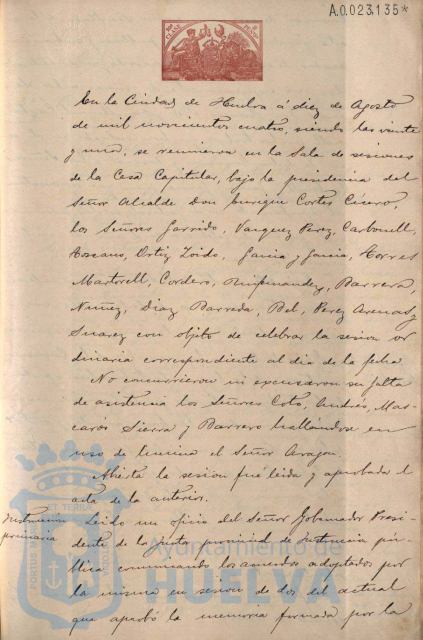 A.0.023.135*
En la Ciudad de Huelva á diez de Agosto
de mil novecientos cuatro, siendo las veinte
y una, se reunieron en la Sala de sesiones
de la Casa Capitular, bajo la presidencia del
Señor Alcalde Don Enrique Cortés Cisero,
los Señores Garrido, Vazquez Perez, Carbonell,
Toscano, Ortiz Toido, Garcia y Garcia, Torres
Martorell, Cordero, Barrera,
Nuñez, Diaz Barreda, Bel, Perez Arenas y
Suarez con objeto de celebrar la sesion or
dinaria correspondiente al dia de la fecha.
No concurrieron ni excusaron su falta
de asistencia los Señores Coto, Andrés, Mas-
carós Sierra y Barrero hallándose en
uso de licencia el Señor Aragon.
Abierta la sesion fué leida y aprobada el
acta de la anterior.
Instruccion
primaria
Leido un oficio del Señor Gobernador Presi-
dente de la Junta provincial de Instruccion pú-
blica comunicando los acuerdos adoptados por
la misma en sesion de dos del actual
que aprobó la memoria firmada por la
Ayuntamiento de
HUELVA